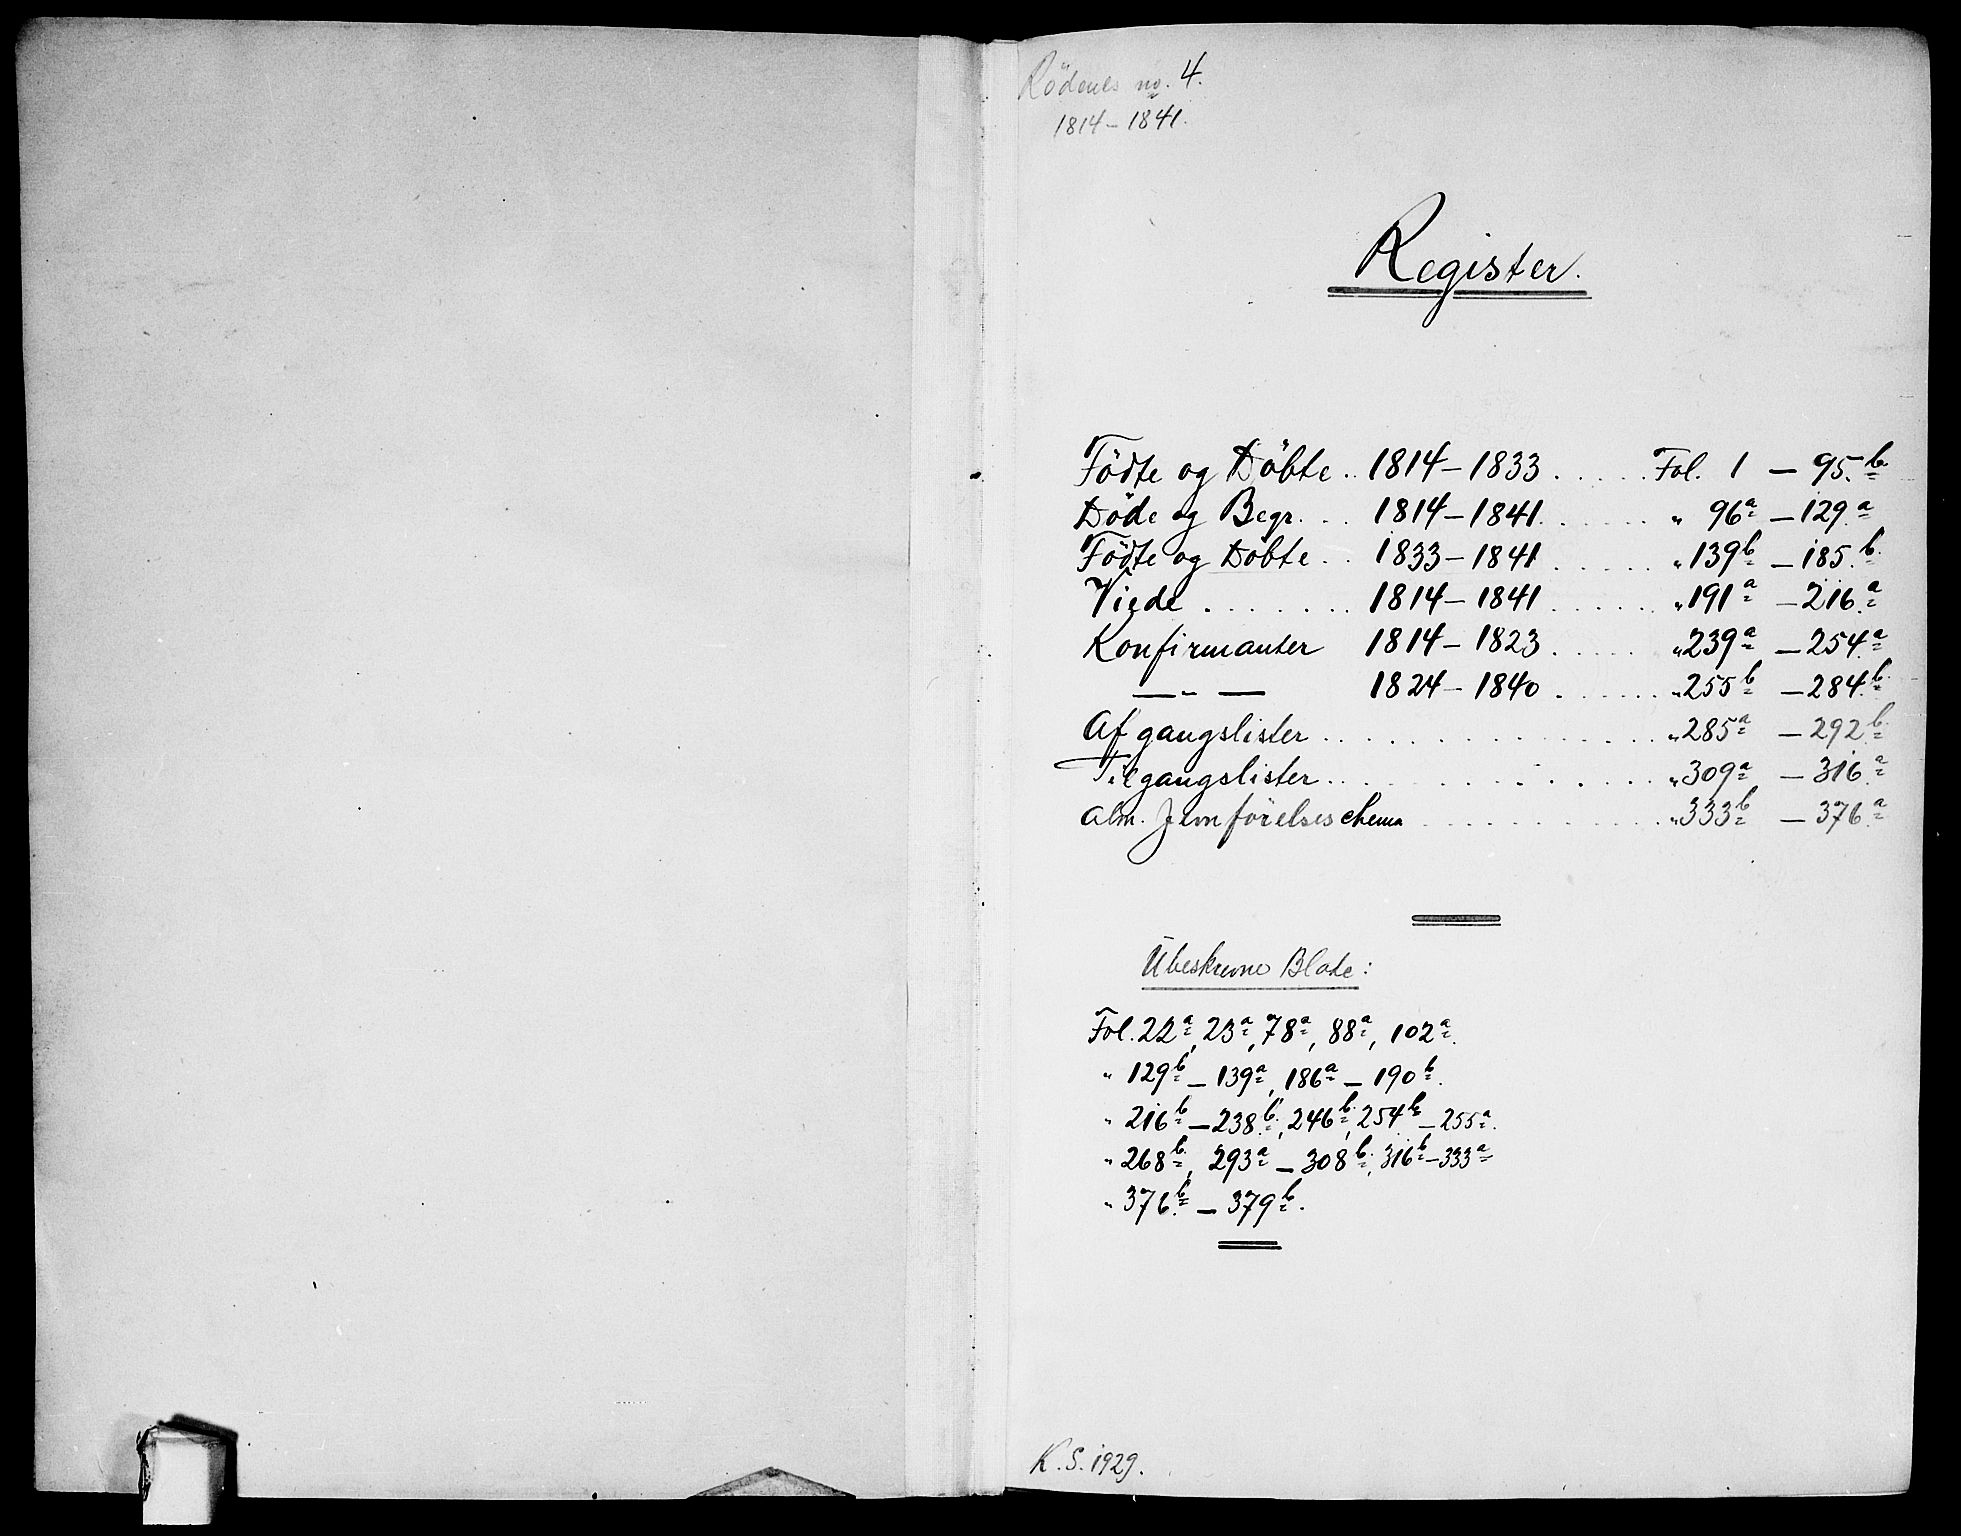 Rödenes no. 4.
1814–1841.
Register.
Födte og Döbte .. 1814–1833 ..... Fol. 1 – 95.b
Döde og Begr. .. 1814–1841 ...... " 96a – 129.a
Födte og Döbte .. 1833–1841 ...... " 139b – 185.b
Viede ....... 1814–1841 ...... " 191a – 216.a
Konfirmanter 1814–1823 ..... " 239a – 254.a
—"— 1824–1840 ...... " 255b – 284.b
Afgangslister ............... " 285a – 292.b
Tilgangslister ............... " 309a – 316.a
Alm. Jevnförelsesschema ............ " 333b – 376.a
Ubeskrevne Blade:
Fol. 22a, 23a, 78a, 88a, 102a.
" 129b – 139a, 186a – 190b.
" 216b – 238b, 246b, 254b – 255a.
" 268b, 293a – 308b, 316b – 333a
" 376b – 379b.
K.S. 1929.